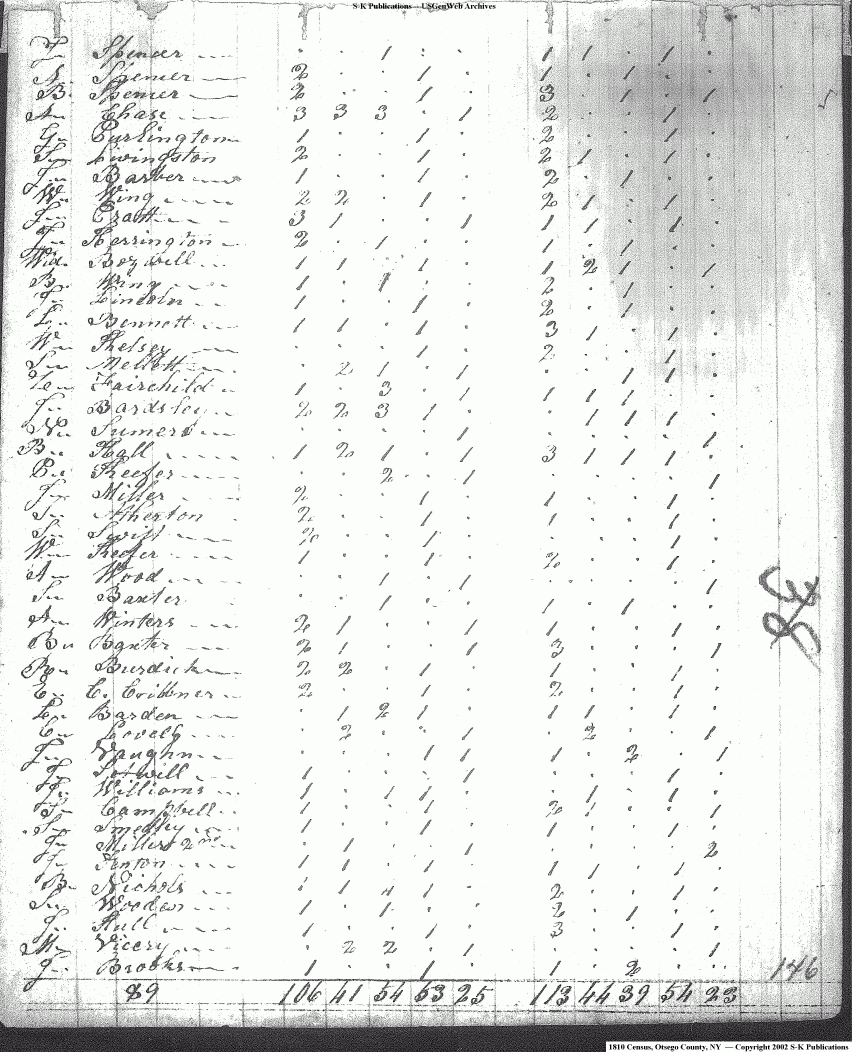 S-K Publications -- USGenWeb Archives
J. Spencer . . 1 . . 1 1 . 1 .
A. Spencer 2 . . 1 . 1 . 1 . .
B. Spencer 2 . . 1 . 3 . 1 . 1
A. Chase 3 3 3 . 1 2 . . 1 .
G. Purlington 1 . . 1 . 2 . . 1 .
Livingston 2 . . 1 . 2 1 . 1 .
J. Barber 1 . . 1 . 2 . 1 . .
W. Wing 2 2 . 1 . 2 1 . 1 .
Craft 3 1 . . 1 1 1 . 1 .
Herrington 2 . 1 . . 1 . 1 . .
Wid. Bozwell 1 1 . 1 . 1 2 1 . 1
B. Wing 1 . 1 . . 2 . 1 . .
Lincoln 1 . . 1 . 2 . 1 . .
Bennett 1 1 . 1 . 3 1 . 1 .
W. Kelsey . . . 1 . 2 . . 1 .
Mellott . 2 1 . 1 . . 1 1 .
Fairchild 1 . 3 . 1 1 1 1 . .
J. Bardsley 2 2 3 1 . . 1 1 1 .
Sumers . . . . 1 . . . . 1
B. Hall 1 2 1 . 1 3 1 1 1 .
Keefer . . 2 . 1 . . . . 1
J. Miller 2 . . 1 . . . . 1 .
Atherton 2 . . 1 . 1 . . 1 .
Swift 2 . . 1 . . . . 1 .
W. Keefer 1 . . 1 . 2 . . 1 .
A. Wood . . 1 . 1 . . . . 1
Baxter . . 1 . . 1 . 1 . .
A. Winters 2 1 . . 1 1 . . 1 .
B. Baxter 2 1 . . 1 3 . . . 1
Burdick 2 2 . 1 . 1 . . 1 .
E. C. Cribbner 2 . . 1 . 2 . . 1 .
Barden . 1 2 . . 1 1 . 1 .
Lovely . 2 . . 1 . 2 . . 1
Vaughn . . . 1 1 . . 2 . 1
Sotwill 1 . . . 1 . . . 1 .
Williams 1 . 1 1 . . 1 . 1 .
Campbell 1 . . 1 . 2 1 . . 1
Smedly 1 . . 1 . 1 . . 1 .
Millers 2nd . 1 . . 1 . . . . 2
Fenton 1 . . 1 . 1 1 . 1 .
B. Nichols . 1 . 1 . 2 . . 1 .
Wooden 1 . 1 . . 2 . 1 . .
J. Hull 1 . . 1 . 3 . . 1 .
M. Vicery . 2 2 . 1 . . . . 1
J. Brooks 1 . . 1 . 1 . 2 . .
146
89 106 41 54 53 25 113 44 39 54 23
1810 Census, Otsego County, NY — Copyright 2002 S-K Publications